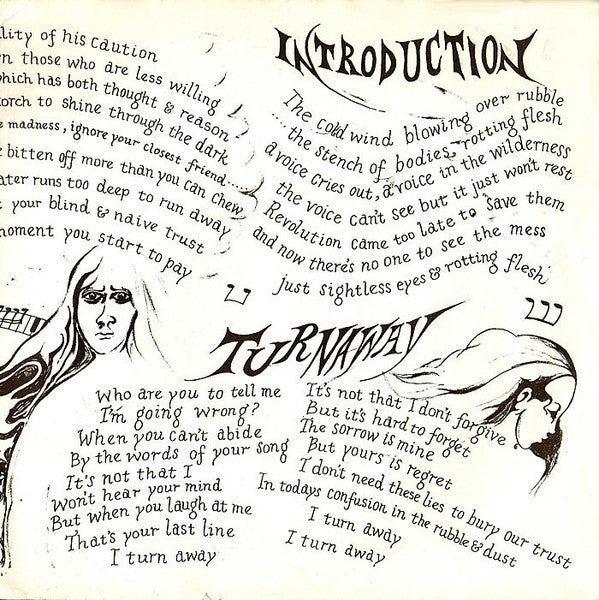 lity of his caution
n those who are less willing
hich has both thought & reason
orch to shine through the dark
e madness, ignore your closest friend.....
e bitten off more than you can chew
ater runs too deep to run away
t your blind & naive trust
moment you start to pay
INTRODUCTION
The cold wind blowing over rubble
.... the stench of bodies, rotting flesh
a voice cries out, a voice in the wilderness
the voice can't see but it just won't rest
Revolution came too late to save them
and now there's no one to see the mess
just sightless eyes & rotting flesh
TURNAWAY
Who are you to tell me
I'm going wrong?
When you can't abide
By the words of your song
It's not that I
won't hear your mind
But when you laugh at me
That's your last line
I turn away
It's not that I don't forgive
But it's hard to forget
The sorrow is mine
But yours is regret
I don't need these lies to bury our trust
In todays confusion in the rubble & dust
I turn away
I turn away